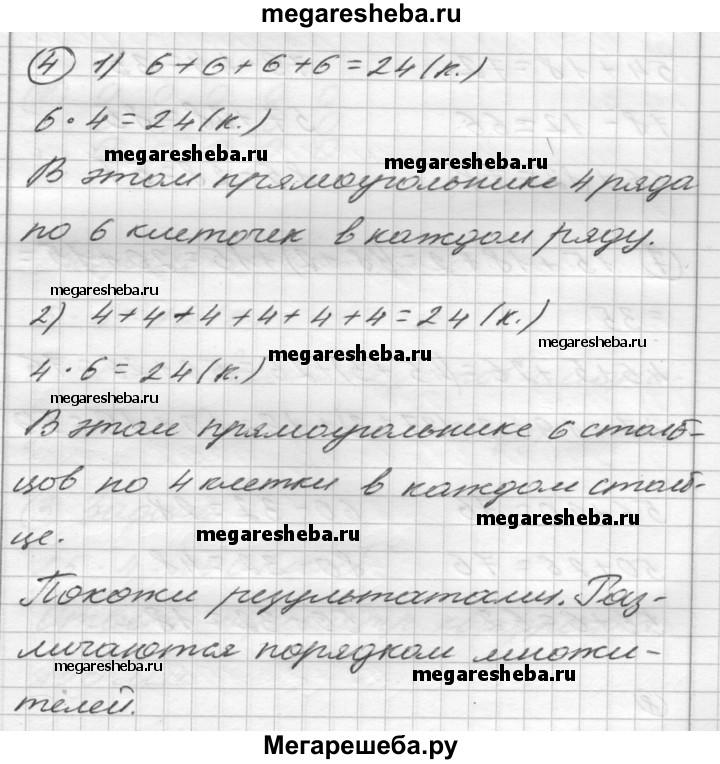 megaresheba.ru
4 1) 6+6+6+6=24(к.)
6·4=24(к.)
megaresheba.ru megaresheba.ru
В этом прямоугольнике 4 ряда
по 6 клеточек в каждом ряду.
megaresheba.ru
2) 4+4+4+4+4+4=24(к.)
megaresheba.ru megaresheba.ru
4·6=24(к.)
megaresheba.ru
В этом прямоугольнике 6 столб-
цов по 4 клетки в каждом столб-
megaresheba.ru
це.
megaresheba.ru
Похожи результатами. Раз-
личаются порядком множи-
megaresheba.ru megaresheba.ru
телей.
Мегарешеба.ру